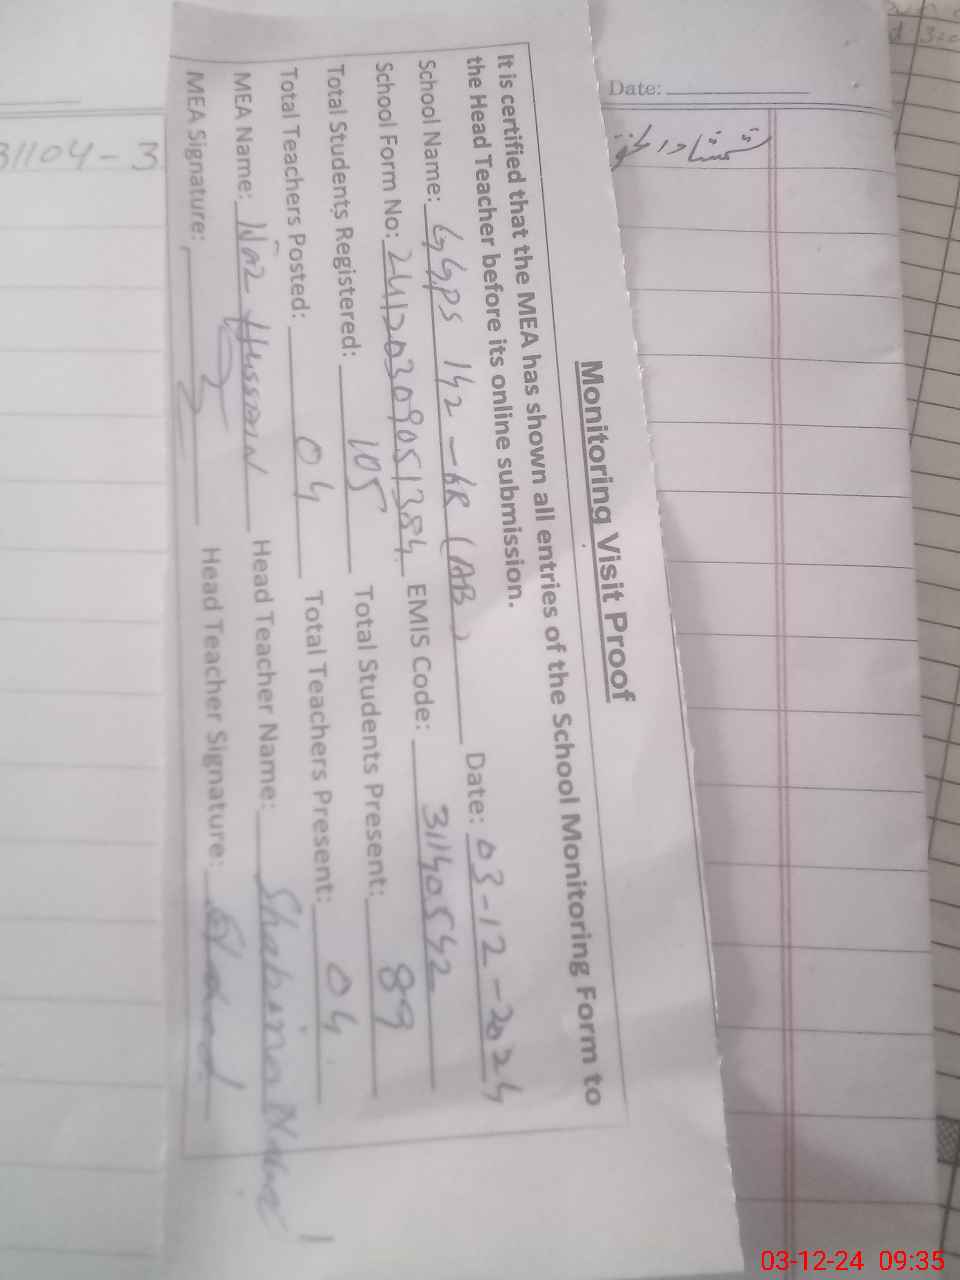 Monitoring Visit Proof
It is certified that the MEA has shown all entries of the School Monitoring Form to
the Head Teacher before its online submission.
School Name: GGPS 142-6R (AB) Date: 03-12-2024
School Form No: 24120309051384 EMIS Code: 31140542
Total Students Registered: 105 Total Students Present: 89
Total Teachers Posted: 04 Total Teachers Present: 04
MEA Name: Niaz Hussain Head Teacher Name: Shabina
MEA Signature: Head Teacher Signature:
Date:
31104-3
03-12-24 09:35